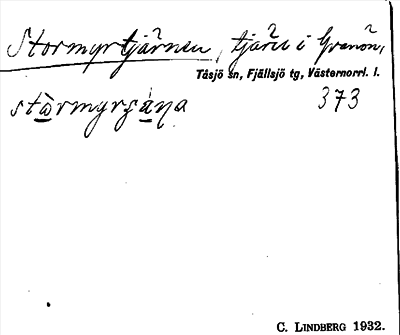 Stormyrtjärnen, tjärn i Granön,
Tåsjö sn, Fjällsjö tg, Västernorrl. l.
373
C. LINDBERG 1932.